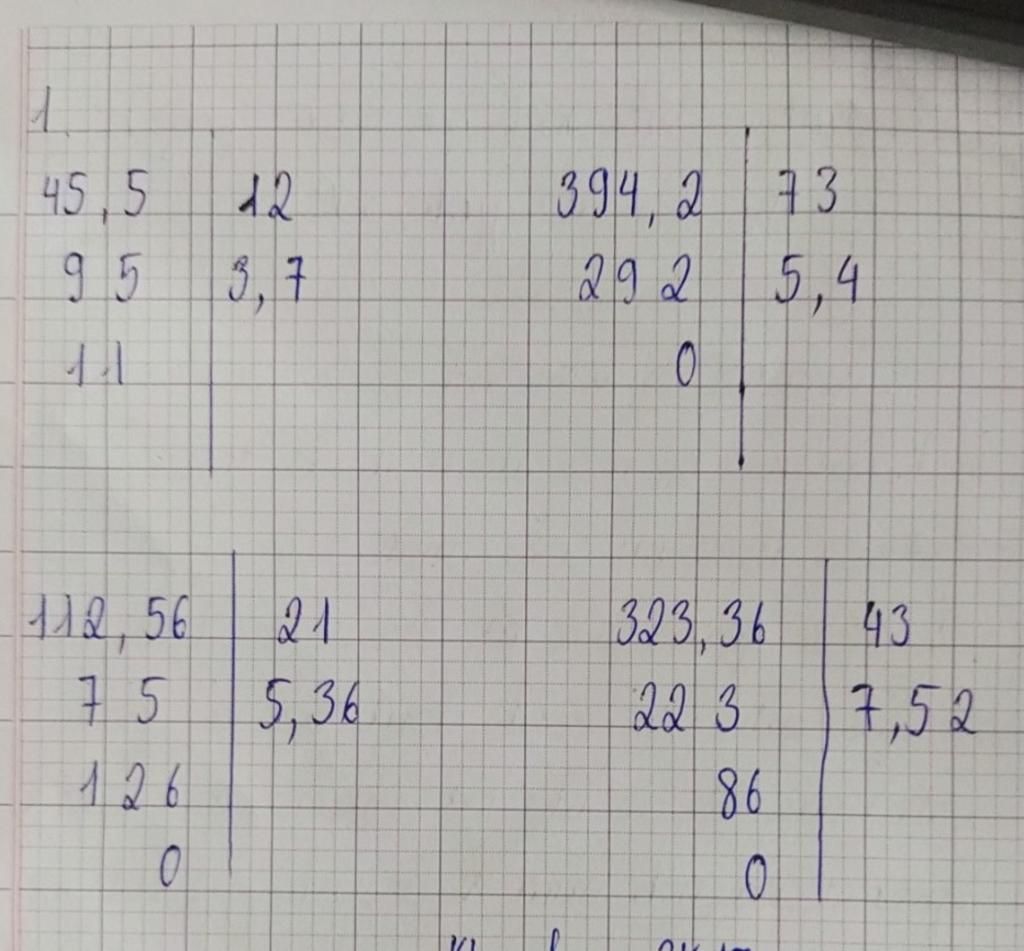 1.
45,5 12 394,2 73
9 5 3,7 29 2 5,4
11 0
112,56 21 323,36 43
7 5 5,36 22 3 7,52
1 2 6 86
0 0